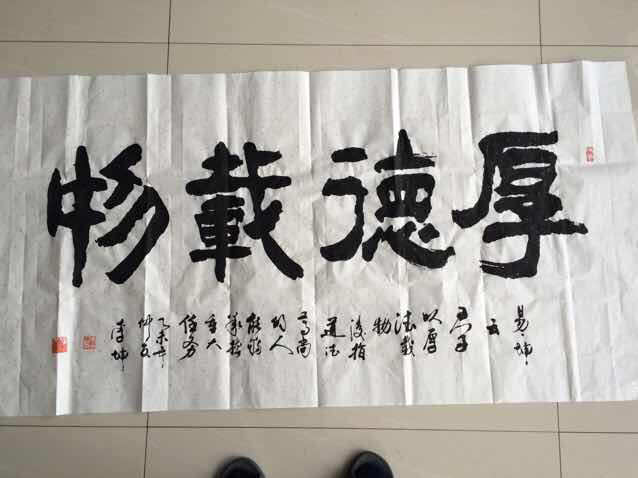 厚德載物
易坤
云
君子
以厚
德載
物
後指
道德
高尚
的人
能够
承担
重大
任务
乙未年
仲夏